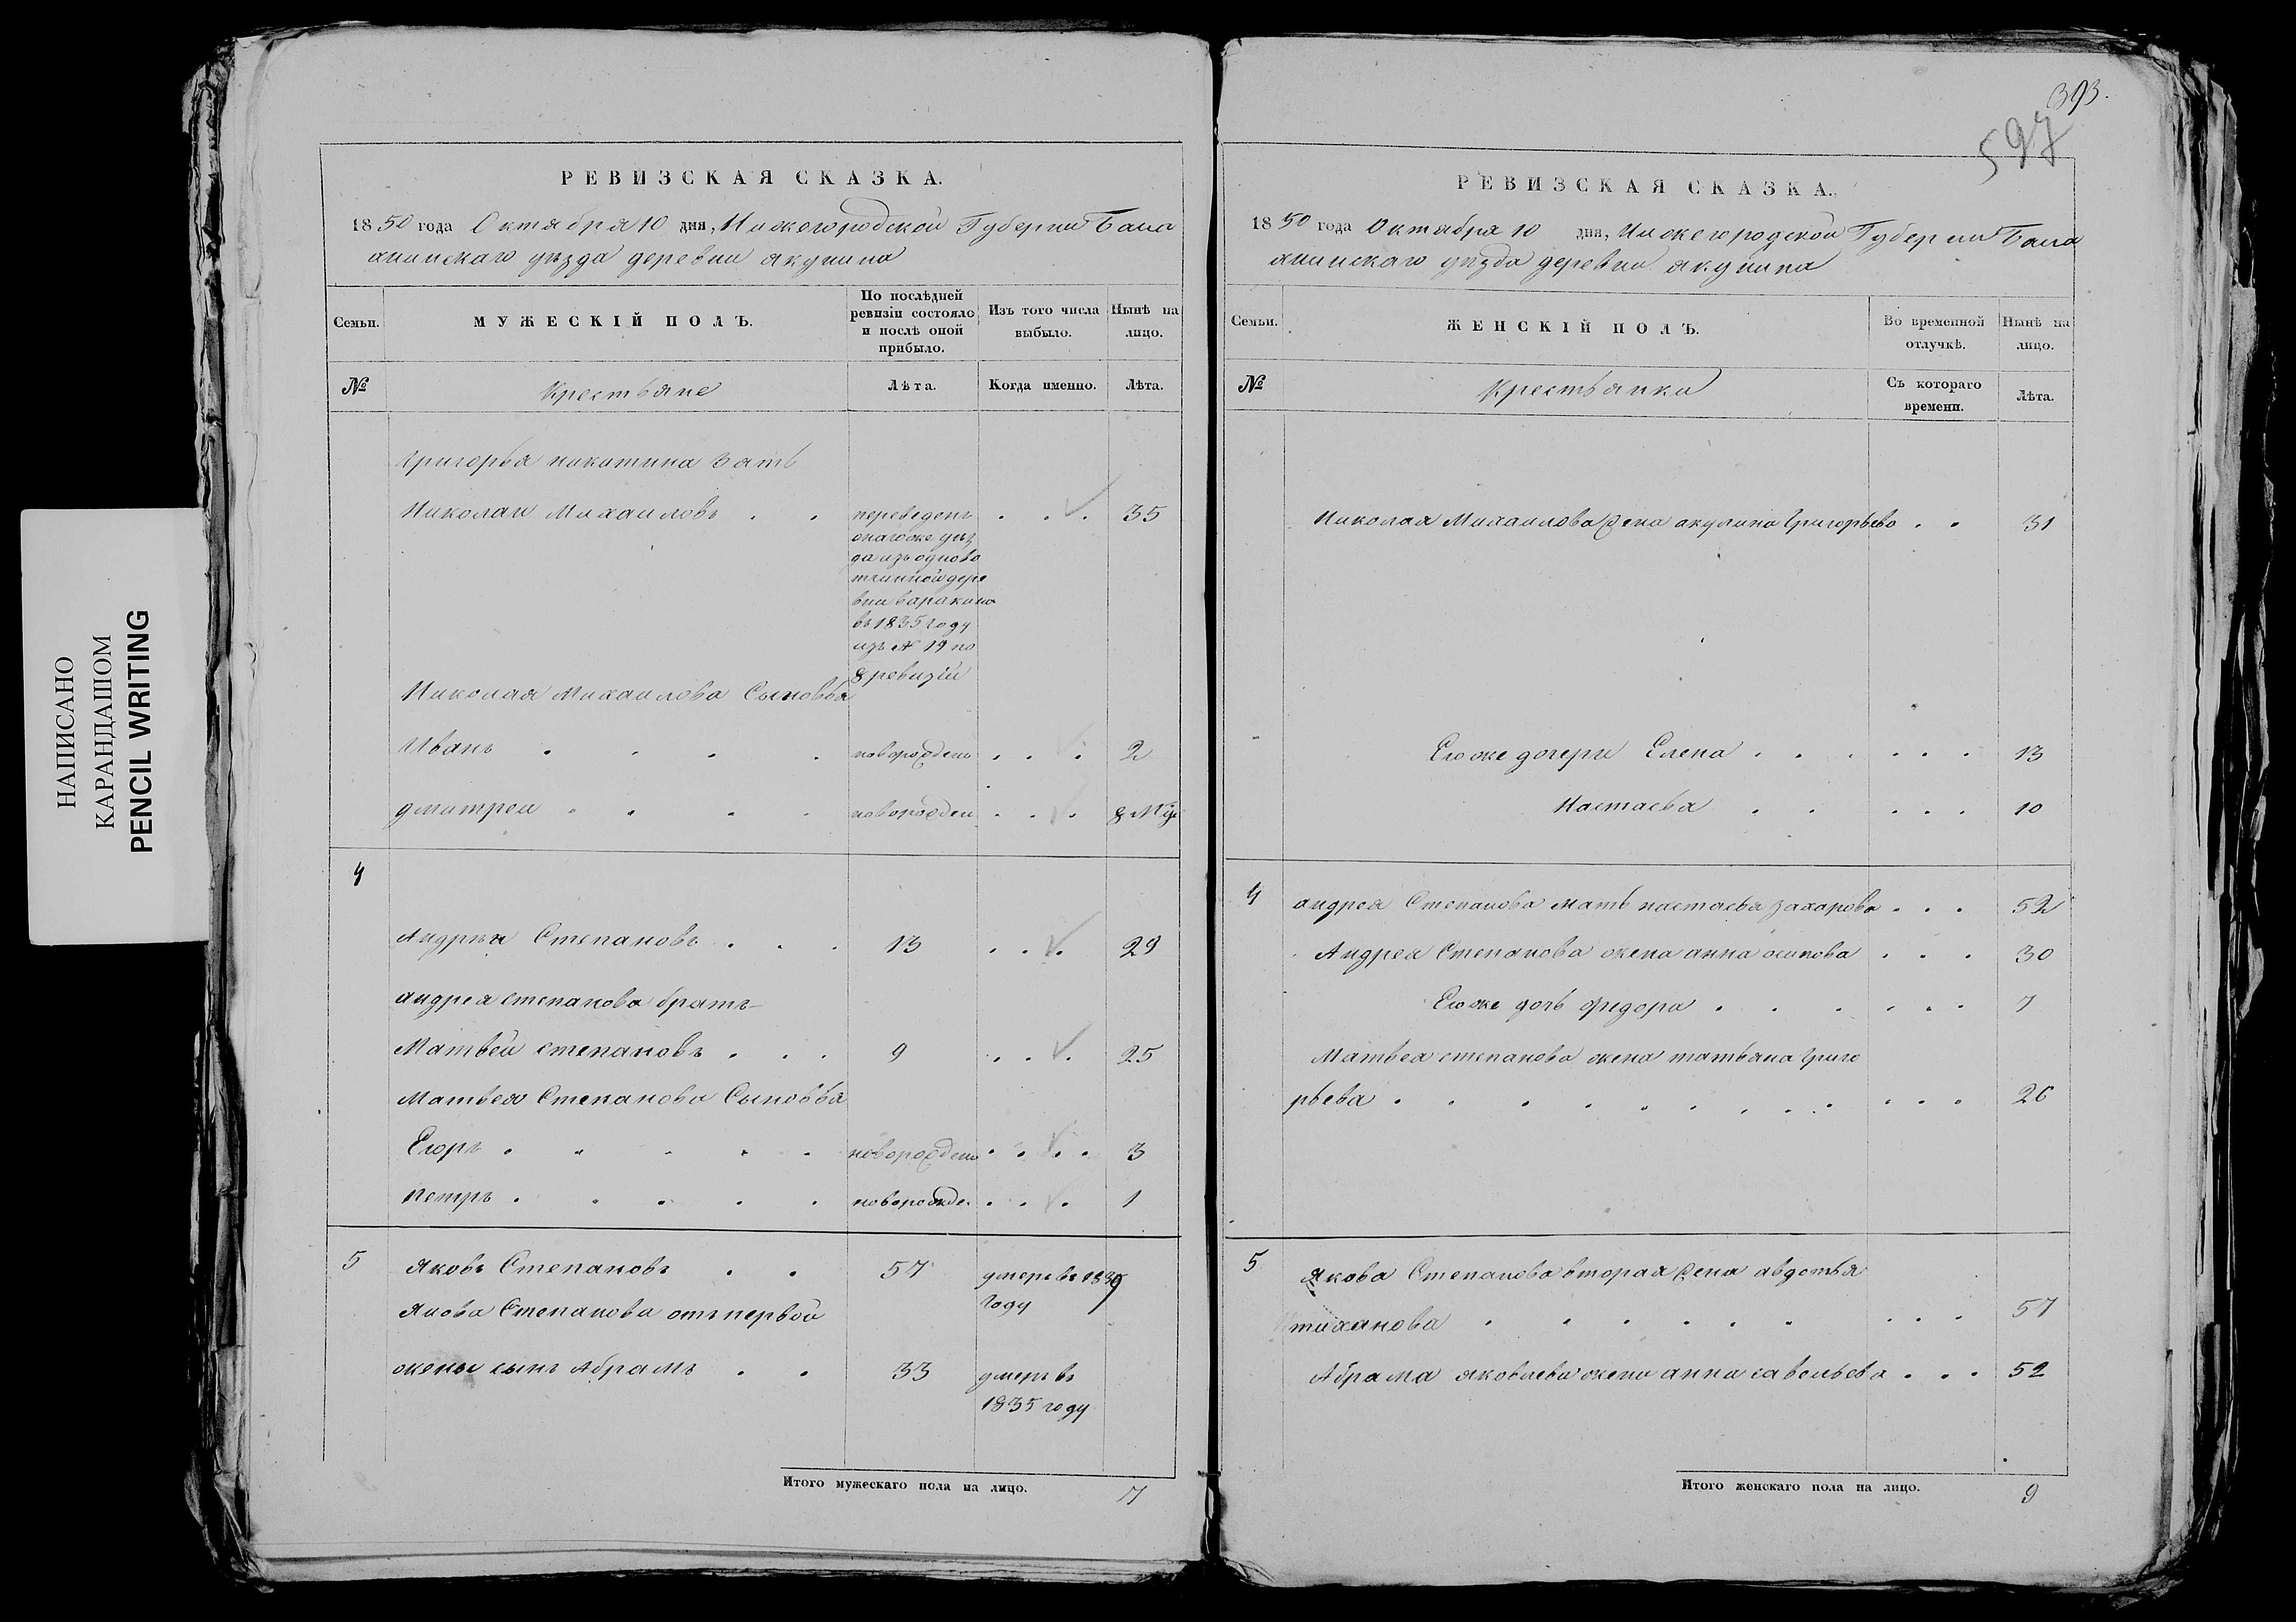 НАПИСАНО
КАРАНДАШОМ
PENCIL WRITING
РЕВИЗСКАЯ СКАЗКА.
1850 года Октября 10 дня, Нижегородской Губернии Бала
хнинскаго уѣзда деревни якунина
Семьи.
МУЖЕСКІЙ ПОЛЪ.
По послѣдней ревизіи состояло и послѣ оной прибыло.
Изъ того числа выбыло.
Нынѣ на лицо.
№
Крестьяне
Лѣта.
Когда именно.
Лѣта.
Григорья никитина зять
Николаи Михаиловъ . . переведенъ . . . 35
онагоже уѣз
да изъ одново
тчинной дере
вни варакина
въ 1835 году
изъ № 19 по
8 ревизіи
Николая Михаилова Сыновья
Иванъ . . . . новорожденъ . . . 2
дмитреи . . . . новорожден . . . 8 М
4
Андрѣи Степановъ . . . 13 . . . 29
андрея степанова братъ
Матвѣй степановъ . . . 9 . . . 25
Матвея Степанова Сыновья
Егоръ . . . . . новорожденъ . . . . 3
петръ . . . . . новорожде. . . . 1
5 яковъ Степановъ . . 57 умеръ въ 1839
году
якова Степанова отъ первой
жены сынъ Абрамъ . . 33 умеръ въ
1835 году
Итого мужескаго пола на лицо. 7
393.
597
РЕВИЗСКАЯ СКАЗКА.
1850 года Октября 10 дня, Нижегородской Губернии Бала
хнинскаго уѣзда деревни якунина
Семьи.
ЖЕНСКІЙ ПОЛЪ.
Во временной отлучкѣ.
Нынѣ на лицо.
№
Крестьянки
Съ котораго времени.
Лѣта.
Николая Михаилова жена акулина Григорьева . . 31
Егоже дочери Елена . . . . . . 13
Настасья . . . . . 10
4 андрея Степанова мать настасья захарова . . . 52
Андрея Степанова жена анна осипова . . . 30
Егоже дочь федора . . . . . . 7
Матвея степанова жена татьяна Григо
рьева . . . . . . . . . . . 26
5 якова Степанова вторая жена авдотья
тиханова . . . . . . . . . 57
Абрама яковлева жена анна савельева . . . 52
Итого женскаго пола на лицо. 9